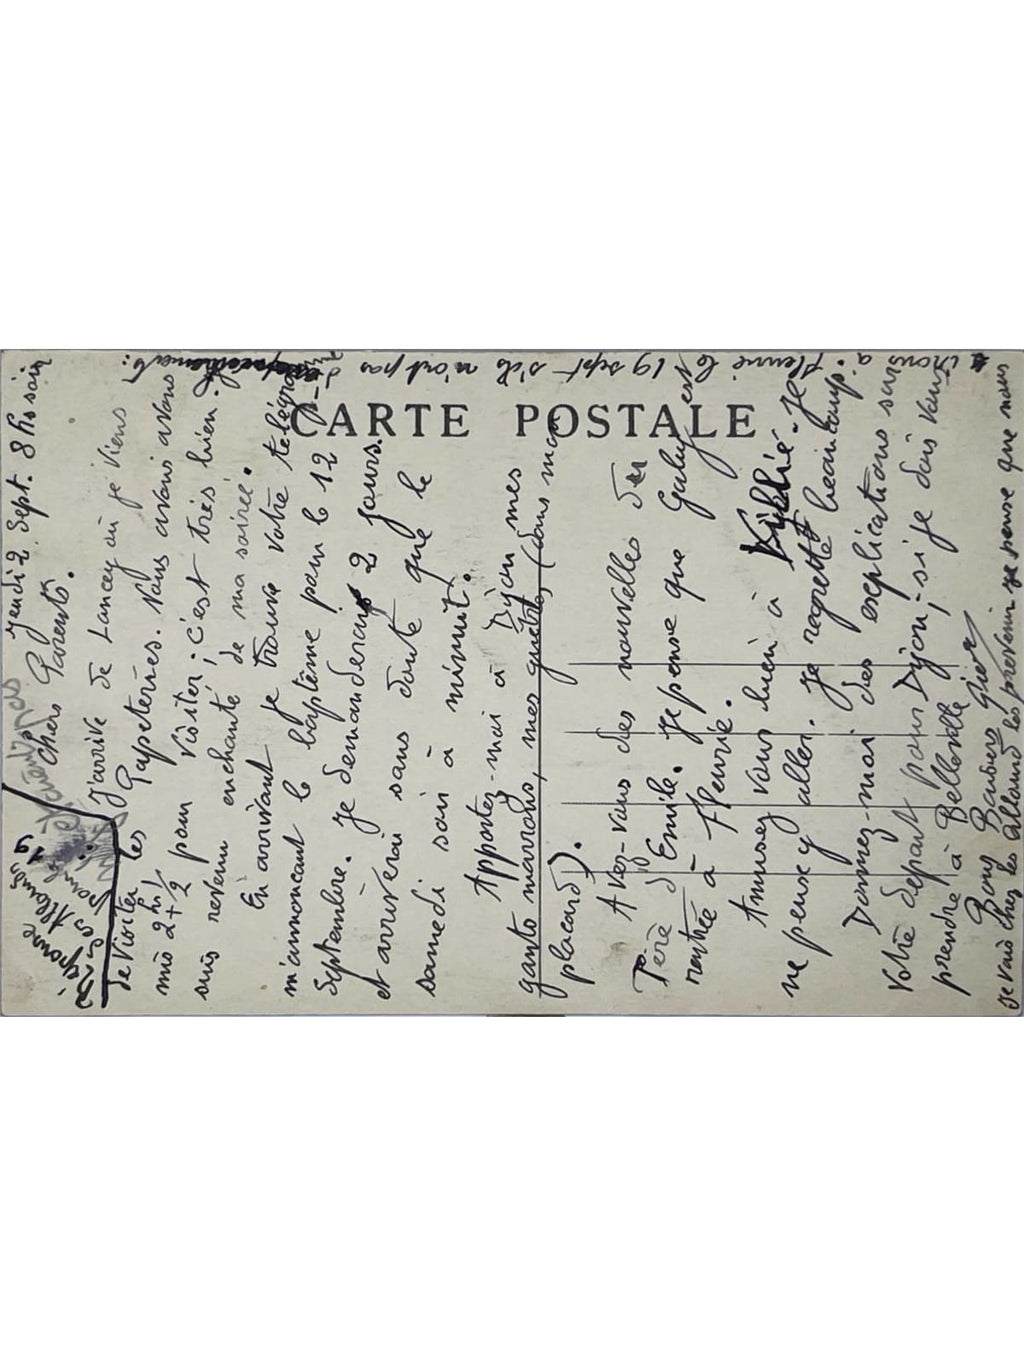 CARTE POSTALE
Jendi 2 Sept. 8 hrs soir
Chers Parents.
J'arrive de Lancey où je viens
de visiter les Papeteries. Nous avons avons
mis 2 h + 1/2 pour visiter ; c'est très bien. Je
suis revenu enchanté de ma soirée.
En arrivant je trouve votre télégra
m'annoncant le baptême pour le 12
Septembre. Je demanderais 2 jours.
et arriverai sans doute que le
samedi soir à minuit.
Apportez-moi à Dijon mes
gants marrons, mes guêtres (dans mon
placard).
Avez-vous des nouvelles du
Père d'Emile. Je pense que Gaby est
rentrée à Fleurie.
Amusez vous bien à Je
ne pense y aller. Je regrette beaucoup.
Donnez-moi des explications sur
votre départ pour Dijon ; si je dois vous
prendre à Belleville
Bons Baisers
Je vais chez les Allard les prévenir je pense que nous
irons à Fleurie le 19 sept s'ils n'ont pas
réponse
des Allard
pour le 19